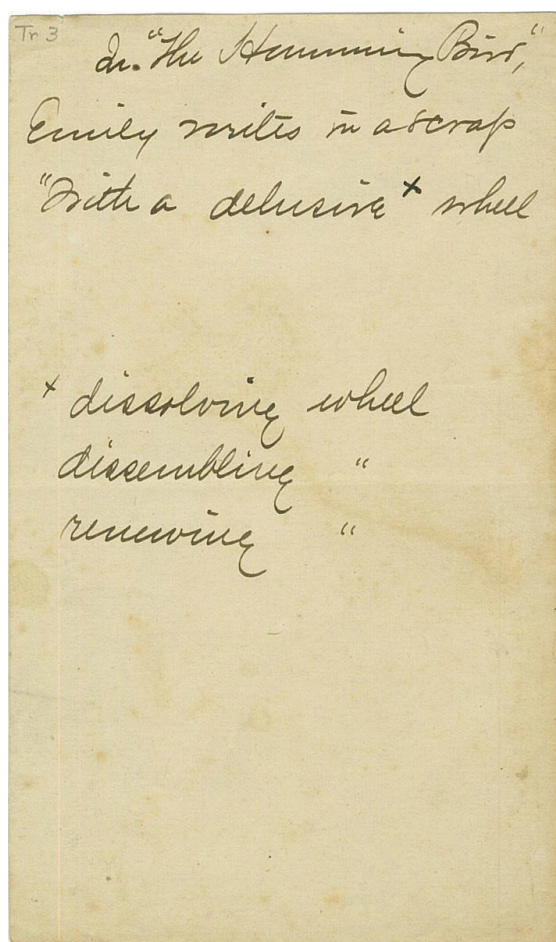 Tr 3
In "The Humming Bird,"
Emily writes in a scrap
"With a delusive × wheel
× dissolving wheel
dissembling "
renewing "